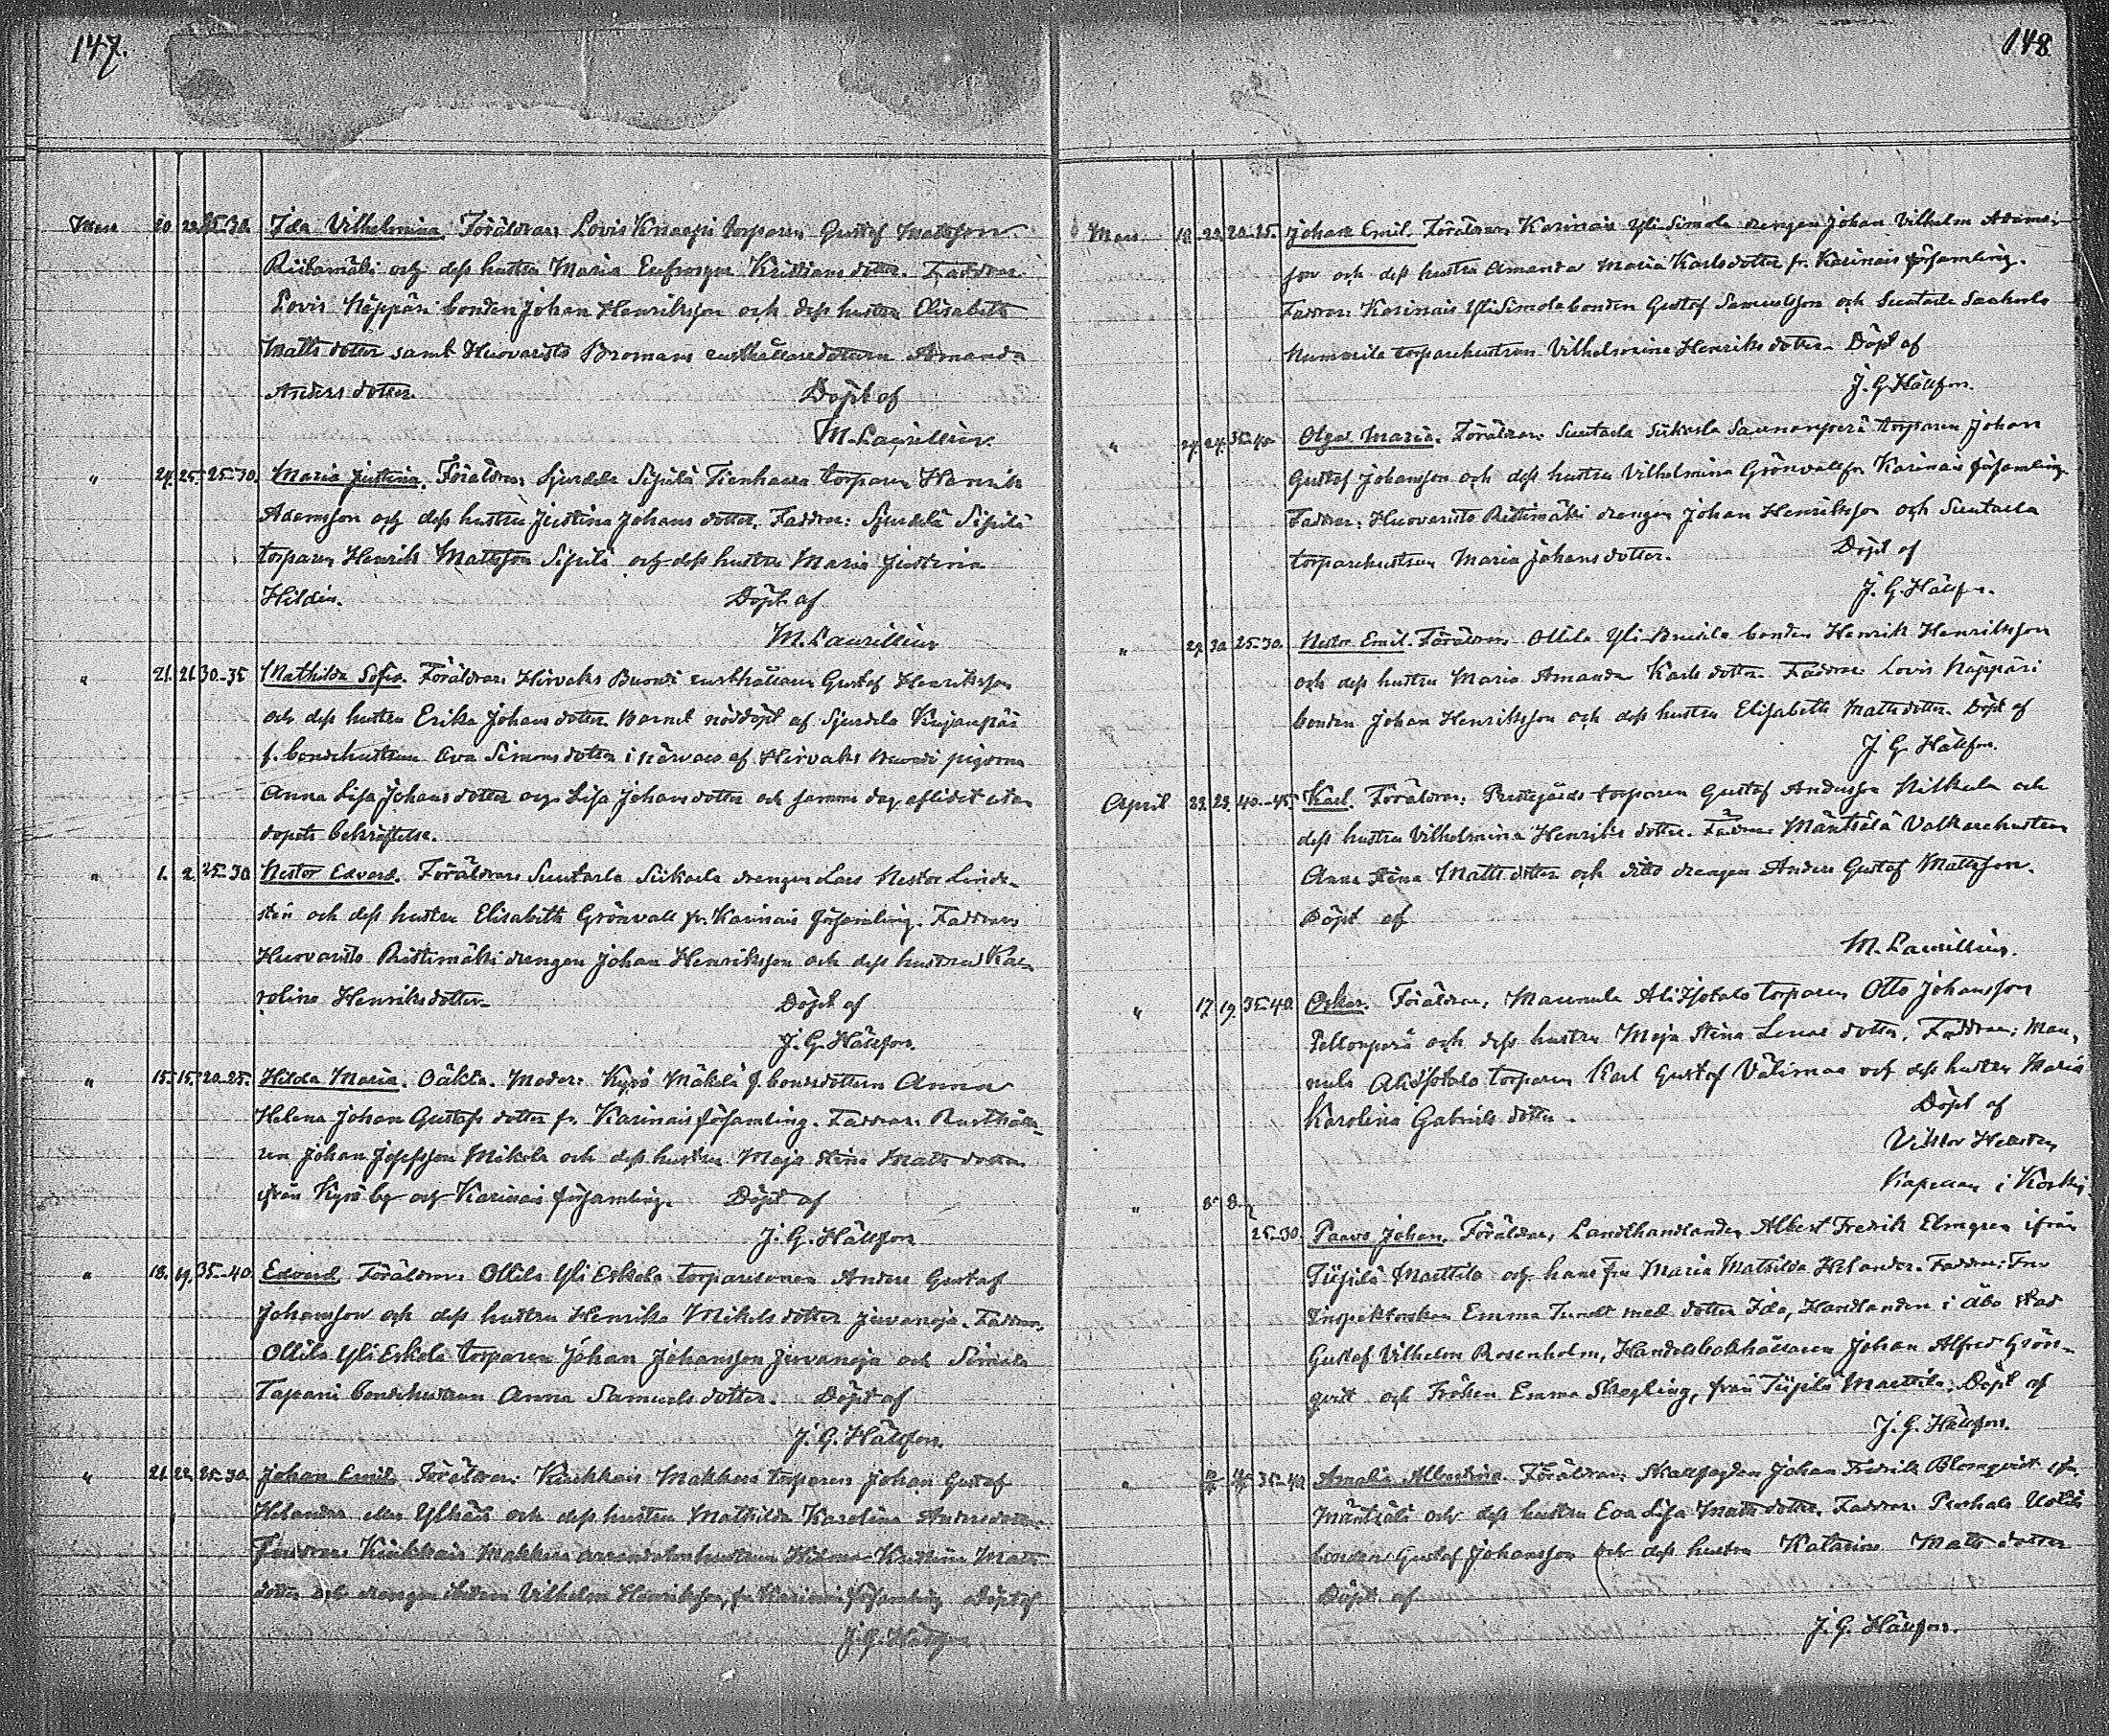 147.
Mars 20. 22. 25-30. Ida Vilhelmina. Föräldrar: Lovis Knaapi torparen Gustaf Mattsson
Riitamäki och dess hustru Maria Eufrosyne Kristians dotter. Faddrar:
Lovis Näppäri bonden Johan Henriksson och dess hustru Elisabeth
Matts dotter samt Huovaristo Bromans rusthållaredottern Amanda
Anders dotter. Döpt af
M. Laurillius.
" 24. 25. 25-30. Maria Justina. Föräldrar: Sjurdela Sipilä Tienhaara torparen Henrik
Adamsson och dess hustru Justina Johans dotter. Faddrar: Sjurdela Sipilä
torparen Henrik Mattsson Sipilä och dess hustru Maria Justina
Hildén. Döpt af
M. Laurillius
" 21. 21. 30-35 Mathilda Sofia. Föräldrar: Hirvaks Buondi rusthållaren Gustaf Henriksson
och dess hustru Erika Johans dotter. Barnet nöddöpt af Sjurdela Kujanpää
f. bondehustrun Eva Simons dotter i närvaro af Hirvaks Buondi pigorna
Anna Lisa Johans dotter och Lisa Johans dotter och samma dag aflidet utan
dopets bekräftelse.
" 1. 2. 25-30 Nestor Edvard. Föräldrar: Suutarla Siikarla drengen Lars Nestor Lind-
stén och dess hustru Elisabeth Grönvall fr. Karinais församling. Faddrar:
Huovaristo Ristimäki drengen Johan Henriksson och dess hustru Ka-
rolina Henriks dotter. Döpt af
J. G. Hällfors.
" 15. 15. 20-25. Hilda Maria. Oäkta. Moder: Kyrö Mäkelä f. bondedottern Anna
Helena Johan Gustafs dotter fr. Karinais församling. Faddrar: Rusthålla-
ren Johan Josefsson Mikola och dess hustru Maja Stina Matts dotter
ifrån Kyrö by och Karinais församling. Döpt af
J. G. Hällfors
" 18. 19. 35-40. Edvard. Föräldrar: Ollila Yli Eskola torparesonen Anders Gustaf
Johansson och dess hustru Henrika Mikels dotter Juvanoja. Faddrar:
Ollila Yli Eskola torparen Johan Johansson Juvanoja och Simala
Tapani bondehustrun Anna Samuels dotter. Döpt af
J. G. Hällfors.
" 21. 22. 25-30. Johan Emil. Föräldrar: Kuikkais Makkara torparen Johan Gustaf
Helander eller Ylhäis och dess hustru Mathilda Karolina Anders dotter.
Faddrar: Kuikkais Makkara hustrun Hilma Kristina Matts
dotter och drengen Vilhelm Henriksson, fr. Karinais församling Döpt af
J. G. Hällfors
148
Mars 18. 22. 20-25. Johan Emil. Föräldrar: Karinais Yli-Simola drengen Johan Vilhelm Adams-
son och dess hustru Amanda Maria Karls dotter fr. Karinais församling.
Faddrar: Karinais Yli Simola bonden Gustaf Samuelsson och Suutarla
Nummila torparehustrun Vilhelmina Henriks dotter. Döpt af
J. G. Hällfors.
" 24. 24. 35-40. Olga Maria. Föräldrar: Suutarla Siikarla Saunanperä torparen Johan
Gustaf Johansson och dess hustru Vilhelmina Grönvall fr. Karinais församling.
Faddrar: Huovaristo Ristimäki drengen Johan Henriksson och Suutarla
torparehustrun Maria Johans dotter. Döpt af
J. G. Hällfors.
" 29. 30. 25-30. Nestor Emil. Föräldrar: Ollila Yli-Buisila bonden Henrik Henriksson
och dess hustru Maria Amanda Karls dotter. Faddrar: Lovis Näppäri
bonden Johan Henriksson och dess hustru Elisabeth Matts dotter. Döpt af
J. G. Hällfors.
April 23. 23. 40-45. Karl. Föräldrar: Prestgårds torparen Gustaf Andersson Nikkula och
dess hustru Vilhelmina Henriks dotter. Faddrar: Mäntsälä Valkarehustrun
Anna Stina Matts dotter och ditto drengen Anders Gustaf Mattsson.
Döpt af
M. Laurillius.
" 17. 19. 35-40. Oskar. Föräldrar: Maunula Ali Isotalo torparen Otto Johansson
Pellonperä och dess hustru Maja Stina Lenas dotter. Faddrar: Mau-
nula Ali Isotalo torparen Karl Gustaf Välimaa och dess hustru Maria
Karolina Gabriels dotter. Döpt af
Viktor Hellsten
Kapellan i Koskis
" 8. 8. 25-30. Paavo Johan. Föräldrar: Landthandlanden Albert Fredrik Elmgren ifrån
Tiipilä Marttila och hans fru Maria Mathilda Helander. Faddrar: Fru
Inspektorskan Emma med dotter Ida, Handlanden i Åbo stad
Gustaf Vilhelm Rosenholm, Handelsbokhållaren Johan Alfred Grön-
qvist och Fröken Emma Skogling, från Tiipilä Marttila. Döpt af
J. G. Hällfors.
" 35-40 Amalia Albertina. Föräldrar: Skallfogden Johan Fredrik Blomqvist ifr.
Mäntsälä och dess hustru Eva Lisa Matts dotter. Faddrar: Perhala Uotila
bonden Gustaf Johansson och dess hustru Katarina Matts dotter
Döpt af
J. G. Hällfors.